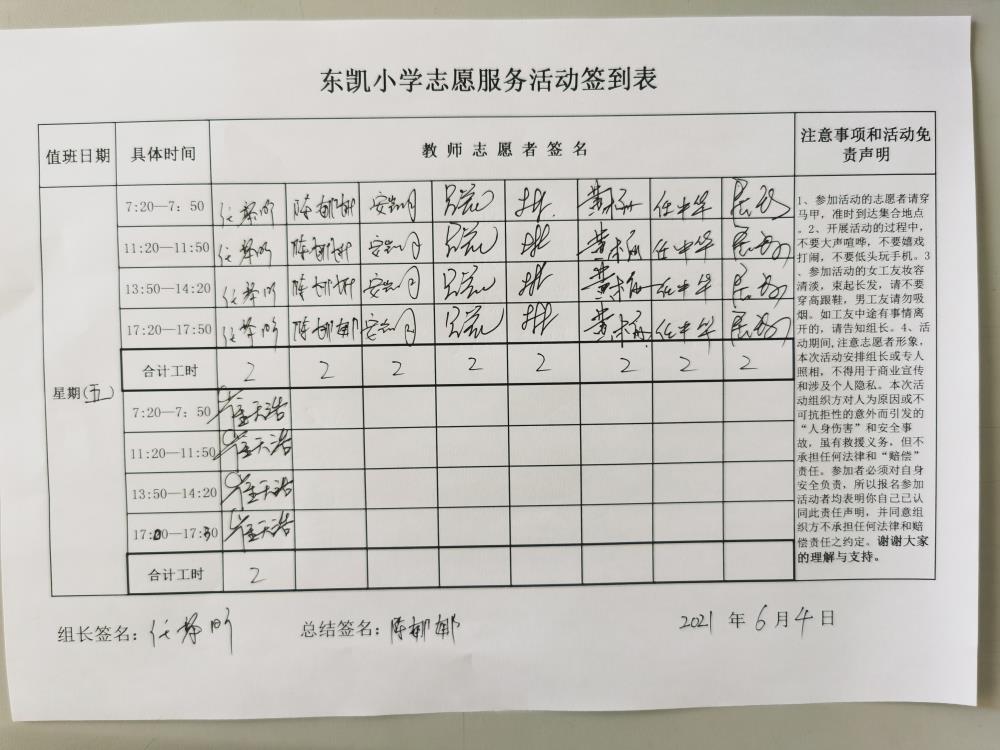 东凯小学志愿服务活动签到表
值班日期 具体时间 教师志愿者签名 注意事项和活动免责声明
7:20—7：50 任静昕 陈娜娜 任中华
11:20—11:50 任静昕 陈娜娜 任中华
13:50—14:20 任静昕 陈娜娜 任中华
17:20—17:50 任静昕 陈娜娜 任中华
合计工时 2 2 2 2 2 2 2 2
星期(五)
7:20—7：50 崔天浩
11:20—11:50 崔天浩
13:50—14:20 崔天浩
17:00—17:30 崔天浩
合计工时 2
1、参加活动的志愿者请穿
马甲，准时到达集合地点
。2、开展活动的过程中，
不要大声喧哗，不要嬉戏
打闹，不要低头玩手机。3
、参加活动的女工友妆容
清淡，束起长发，请不要
穿高跟鞋，男工友请勿吸
烟。如工友中途有事情离
开的，请告知组长。4、活
动期间,注意志愿者形象，
本次活动安排组长或专人
照相，不得用于商业宣传
和涉及个人隐私。本次活
动组织方对人为原因或不
可抗拒性的意外而引发的
“人身伤害”和安全事
故，虽有救援义务，但不
承担任何法律和“赔偿”
责任。参加者必须对自身
安全负责，所以报名参加
活动者均表明你自己已认
同此责任声明，并同意组
织方不承担任何法律和赔
偿责任之约定。谢谢大家
的理解与支持。
组长签名：任静昕 总结签名：陈娜娜 2021 年 6 月 4 日